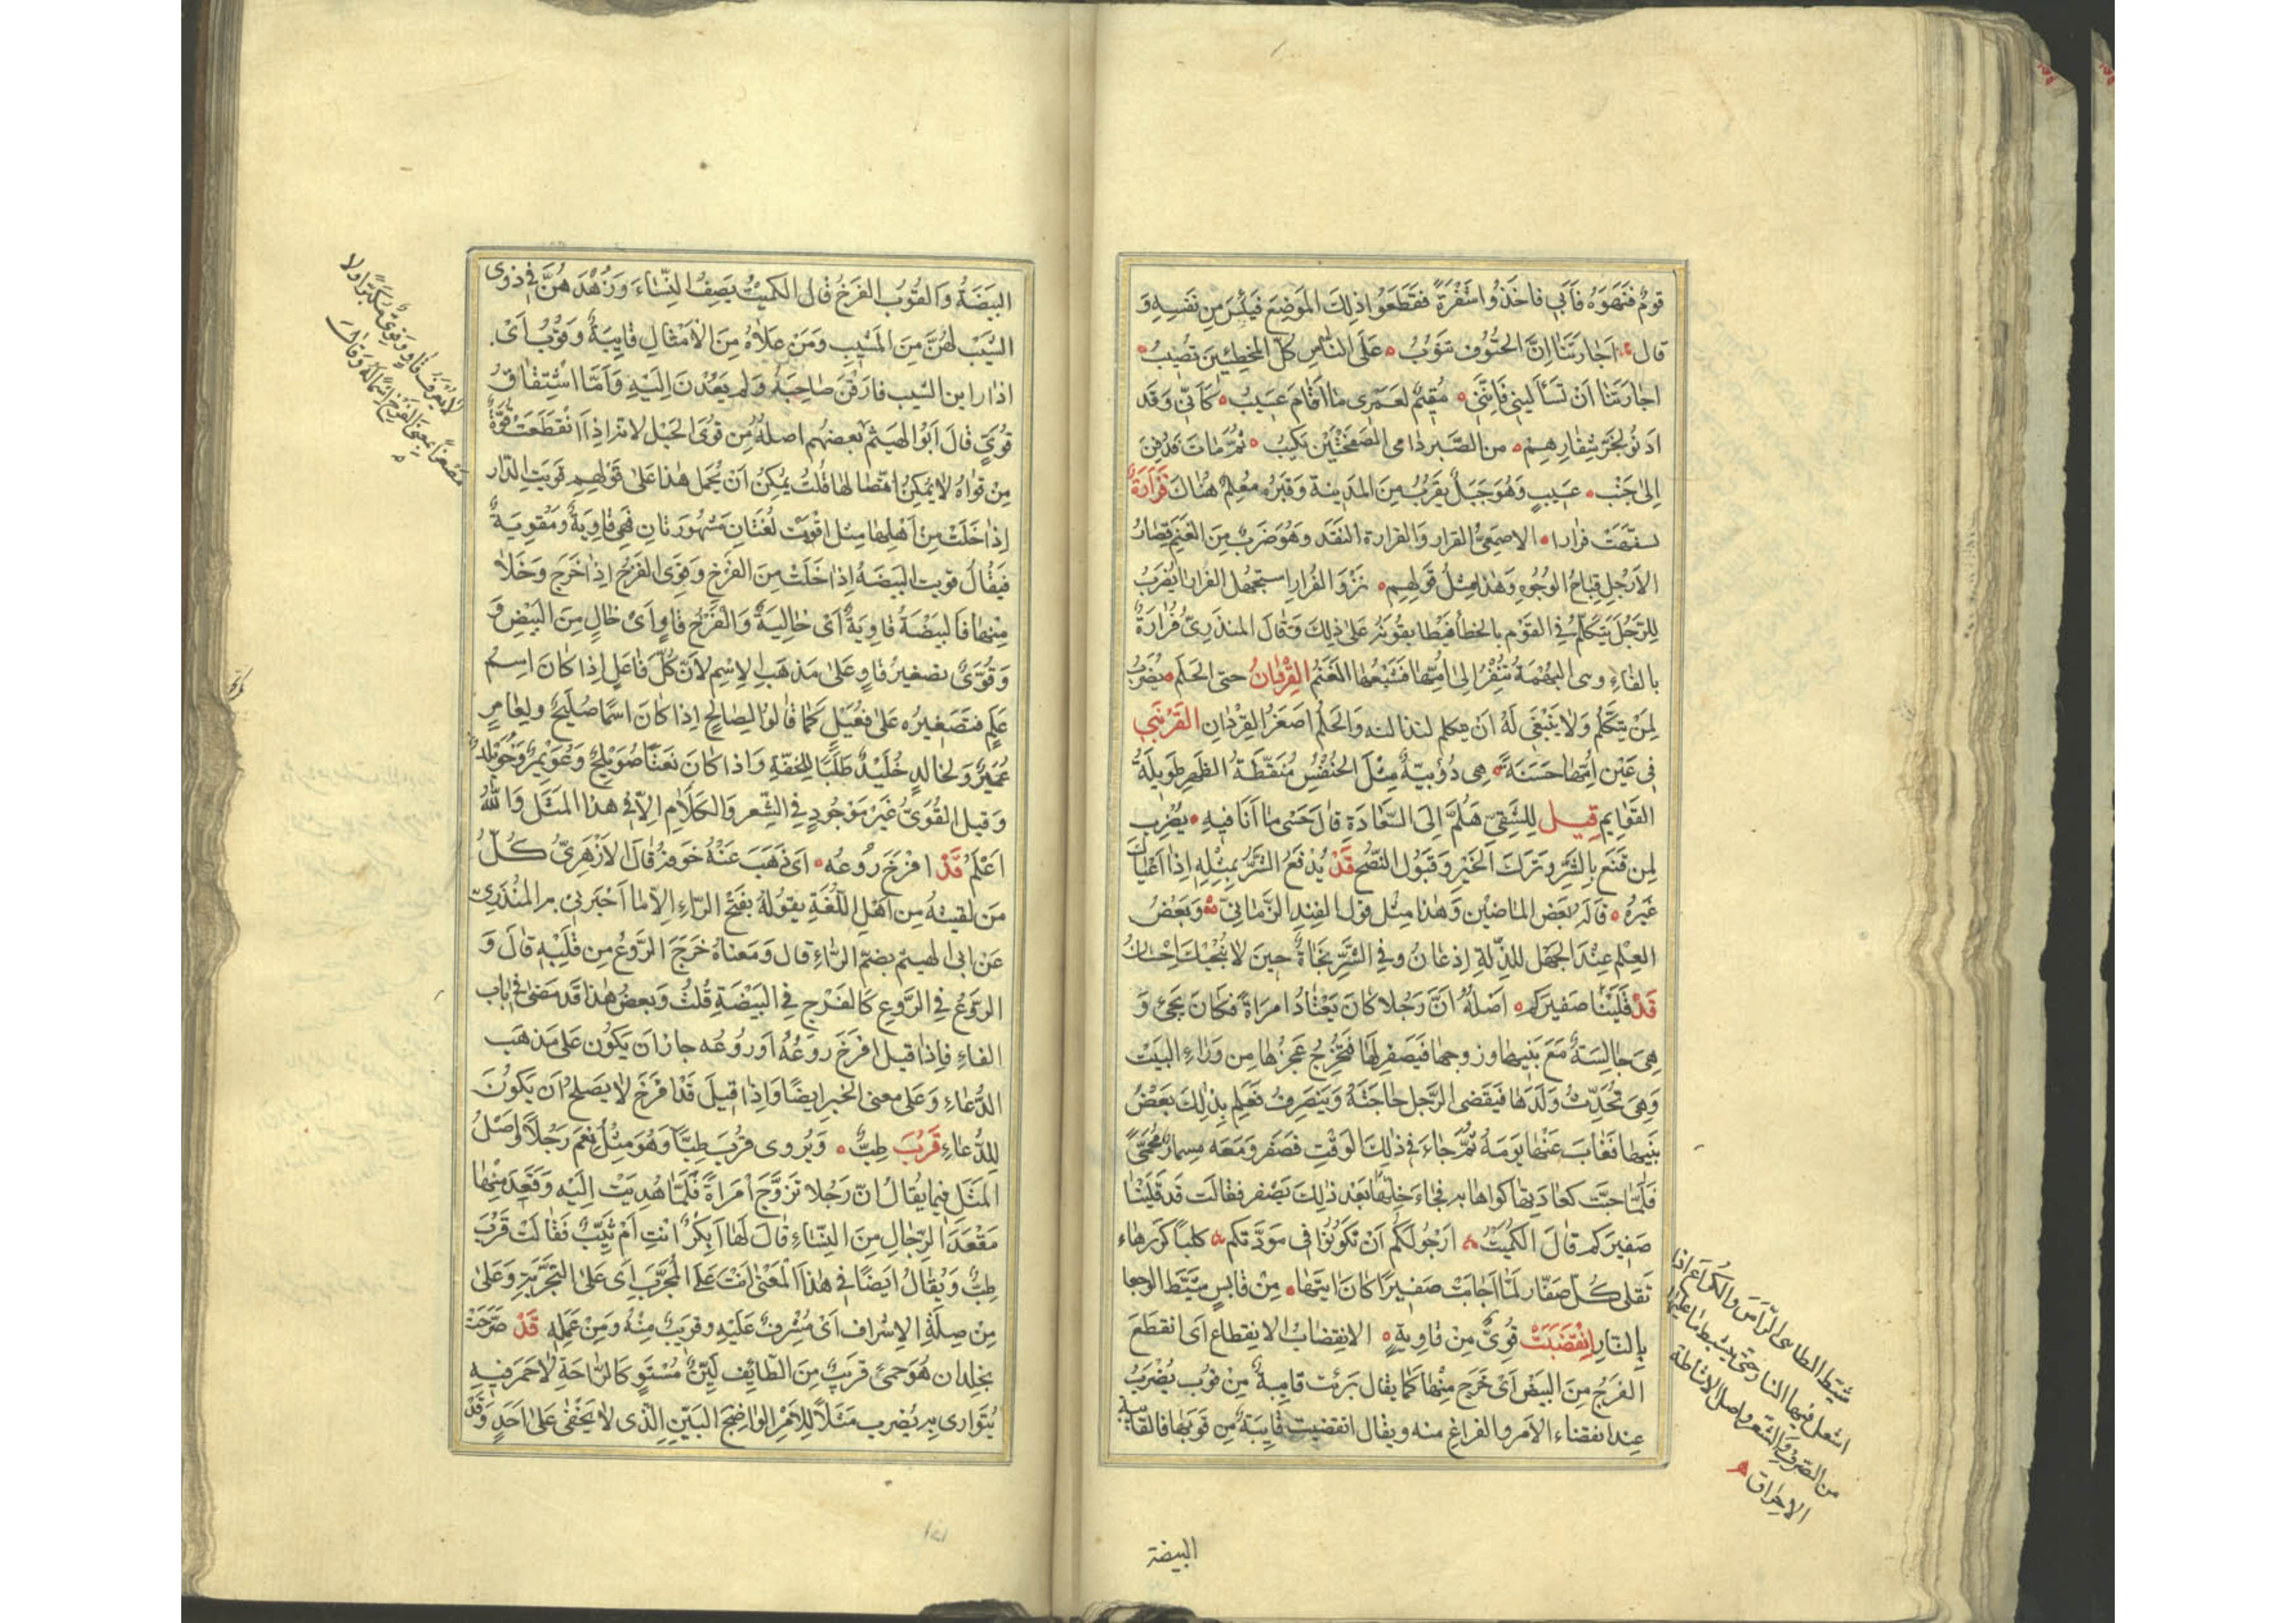 قومٌ فنَهَوهُ فَاَبَى فاخذوا شَفْرَةً فقَطَعُوا ذلِكَ المَوضِعَ فيَئِسَ مِن نَفسِهِ وَ
قال اَجارتَنا اِنَّ الحتُوفَ تنوُبُ عَلَى النّاسِ كلَّ المخطِئينَ تُصِيْبُ
اجارَتَنا اَن تَسأَليني فَاِنَّنى مُقيمٌ لعَمرى ما اَقامَ عَسِيبُ كَاَنّى وَقَد
ادنَوْا لِحَزٍّ شِفَارِهِم من الصَّبر دامى الصَّفحَتَيْن نكيبُ ثُمَّ مَاتَ فَدُفِنَ
اِلى جَنْبِ عَسِيبٍ وَهُوَ جَبَلٌ يقرُبُ مِنَ المدَينة وَقَبَرُه مُعلمٌ هُنَاكَ قَرَارَةٌ
تسفّهَت قَرارا الاصمَعىُّ القرار وَالقرارة النَقَد وهُوَ ضَربٌ مِنَ الغَنَم قِصَارُ
الاَرجُلِ قِباحُ الوُجُوهِ وَهٰذا مِثلُ قَولِهِم نَزْوَ الفُرارِ استجهَلَ الفُرارا يُضرَبُ
لِلرَّجُلِ يَتكَلَّمُ فى القَوْمِ بالخطأ فيطابقونَه على ذلِكَ وَقالَ المنذرِىّ فُرَارَةٌ
بالفاءِ وهى البُهمَةُ تَنْفِرُ اِلى اُمِّها فَتتبَعُها الغَنَمُ القِرْدانُ حتى الحَلَم يُضرَبُ
لِمَنْ يتكَلّمُ وَلا يَنبَغى لَهُ اَنْ يتكلم لنذالته وَالحَلَمُ اَصغَرُ القِرْدانِ القَرَنْبى
فى عَيْن اُمِّها حَسَنَة هِى دُوَيبّةٌ مِثلَ الخنفُسِ مُنَقّطَةُ الظهرِ طَوِيلَةُ
القَوايِم قيل لِلشَقِىِّ هَلُمَّ اِلَى السَّعَادَةِ قال حَسبى ما اَنَا فيهِ يُضْرب
لِمن قَنَع بِالشَرِّ وتَرَكَ الخَيرَ وَقَبُولَ النّصحِ قَدْ يُدفَعُ الشَرُّ بِمِثلِهِ اِذا اَعْيَاكَ
غَيرُه قالَه بَعض الماضيْن وَهٰذا مِثل قول الفِنِد الزَّمانِىّ وَبَعضُ
الحِلمِ عِنْدَ الجَهْلِ للذِّلّةِ اِذعانٌ وفى الشَرِّ نَجَاةٌ حِينَ لا يُنْجيكَ اِحْسَانُ
قَدْ قَلَيْنا صَفيرَكم اَصلُهُ اَنَّ رَجُلا كانَ يَعْتادُ امرَاَةً فكانَ يجىُٔ وَ
هِىَ جالِسَةٌ مَعَ بَنيها وزوجها فَيَصفِرُ لَها فتُخرِجُ عَجزَها مِن وَراءِ البَيْت
وَهِىَ تُحَدِّثُ وَلَدَها فيَقضى الرَّجل حاجَتَهُ وَيَنصَرفُ فَعَلِمَ بِذٰلِكَ بَعضُ
بَنِيها فَغابَ عَنْها يَومَهُ ثُمَّ جَاءَ فى ذٰلِكَ الوَقتِ فصَفَر وَمَعَه مِسمارٌ مُحمىً
فَلَمّا جاءَت كعادَتِها كواها بِه فَجاءَ خِلُّها بَعْد ذٰلِكَ يَصفر فقالَت قد قَلَيْنا
صَفيرَكم قالَ الكُمَيْت اَرْجُو لَكُم اَنْ تَكُونُوا فى مَوَدَّتِكم كلباً كَوَرهاء
تَقلى كُلَّ صَفّار لَمّا اَجابَت صَفِيراً كانَ ايتها مِنْ قابسٍ شَيَّطَ الوجعا
بالنّارِ اِنْقَضَبَتْ قُوَىٌّ مِنْ قاوِيةٍ الانقِضابُ الانِقِطاع اَى انقطَعَ
الفَرخُ مِنَ البَيْض اَىْ خَرَج مِنْها كَما يقال بَرِئَت قايبةٌ مِنْ قُوب يُضْرَبُ
عِند انقضاء الاَمر والفراغ منه ويقال انقضَبت قايِبَةٌ مِن قَوبها فالقايبة
شيّط الطاهى الرّأسَ والكراعَ اذا
اشعل فيهما النار حتى يتشيط ما عليهما
من الصّوف والشّعر واصل الاشاطة
الاحراق
البيضة
البَيضَةُ وَالقُوْبُ الفَرخُ قال الكميتُ يَصِفُ النِّسَاءَ وَزُهْدَهُنَّ فِى ذوى
الشَيْبِ لَهُنَّ مِنَ المَشيِبِ وَمَن عَلاهُ مِنَ الاَمْثالِ قايِبَةٌ وَقُوْبُ اَىْ
اذا راين الشيب فارَقْنَ صَاحِبَهُ وَلم يَعُدْنَ اِلَيْهِ وَاَمّا اشتِقاقُ
قُوَىٍّ قالَ اَبُو الهَيثَم بَعضُهم اصلهُ مِن قُوَى الحَبْل لانّه اِذا انقطَعَت قُوَّةٌ
مِنْ قُواهُ لا يُمكِنُ اتّصالها قُلتُ يُمكِنُ اَنْ يُحمَل هٰذا عَلىٰ قَولِهِم قوِيَتِ الدّار
اِذا خَلَتْ مِنْ اَهْلِها مِثل اقوَتْ لُغَتانِ مَشهُورَتانِ فَهى قاوِيَةٌ وَمُقوِيَةٌ
فيُقَالُ قويت البَيضَةُ اِذا خَلَتْ مِنَ الفَرْخِ وَقَوِىَ الفَرخُ اِذا خَرَجَ وَخَلا
مِنها فَالبَيْضَةُ قاوِيَةٌ اَىْ خاليَةٌ وَالفَرْخُ قاوٍ اَىْ خالٍ مِنَ البَيْضِ وَ
وَقُوَىٌّ تصغيرُ قاوٍ عَلىٰ مَذهَبِ الاِسْمِ لاَنّ كُلَّ فاعِلٍ اِذا كانَ اسمُ
عَلَمٍ فتَصغيرُه عَلىٰ فُعَيْلٍ كما قالوا لِصالحٍ اِذا كانَ اسمًا صُلَيحٌ ولعامِرٍ
عُمَيرٌ ولخالدٍ خُلَيْدٌ طَلَبًا للخفّةِ واذا كانَ نَعتًا صُوَيْلِحٌ وَعُوَيْمِرٌ وَخُوَيلِدٌ
وَقيل القُوَىُّ غَيرَ مَوجُودٍ فِى الشِّعر وَالكَلامِ اِلّا فى هذا المثَل وَاللّٰهُ
اَعْلَمُ قَدْ افْرَخَ رُوعُه اَى ذَهَبَ عَنْهُ خَوفهُ قالَ الاَزْهَرِىُّ كُلُّ
مَن لقيتُهُ مِن اَهْلِ اللُّغَةِ يَقولُهُ بِفَتح الرّاءِ اِلّا ما اَخبَرنى به المُنْذرِىّ
عَنْ ابى الهيثم بضمّ الرّاءِ قال وَمَعناهُ خَرَجَ الرَّوعُ مِن قَلبِهِ قالَ وَ
الرَّوْعُ فى الرُّوعِ كَالفَرْخِ فى البَيْضَةِ قُلتُ وَبعضُ هٰذا قَد مَضىٰ فى باب
الفاءِ فاِذا قيل افرَخَ رَوعُهُ اَو رُوعُه جازَ اَن يَكُون عَلىٰ مَذهَب
الدُّعاءِ وَعَلى معنى الخبر ايضًا وَاِذا قيلَ قَدْ افرَخَ لا يَصلحُ اَن يَكونَ
لِلدُّعَاءِ قَرُبَ طِبٌّ وَيُروى قرُبَ طِبًّا وَهُوَ مِثلُ نِعمَ رَجُلاً وَاَصلُ
المَثَل فِيما يُقالُ انّ رَجُلا تزوَّجَ امرَاَةً فَلَمّا هُدِيَتْ اِلَيْهِ وَقَعَدَ مِنها
مَقعَدَ الرِّجالِ مِنَ النِّسَاءِ قالَ لَها اَبِكرٌ انتِ اَمْ ثَيّبٌ فَقَالَتْ قَرُبَ
طِبٌّ وَيُقالُ اَيضًا فى هٰذا المَعْنى اَنتَ عَلَى المُجَرَّبِ اَى عَلى التجْرِبَةِ وَعَلى
مِنْ صِلَةِ الاِشرافِ اَىْ مُشرِفٌ عَلَيْهِ وقريبٌ مِنْهُ وَمِنْ عَمَلِهِ قَدْ صَرَّحَتْ
بجلدان هُوَ حمىً قريبٌ مِنَ الطّايِف لَيّنٌ مُسْتَوٍ كَالرّاحَةِ لا خَمَرَ فيهِ
يُتَوارى بِه يُضرب مَثَلاً لِلاَمْرِ الواضِحِ البَيّنِ الَّذى لا يَخفىٰ عَلىٰ اَحَدٍ وَقَد
لا يُعرَفُ قاوٍ وقوىّ مكبّراً ولا
مصغّراً بمعنى الفَرْخ